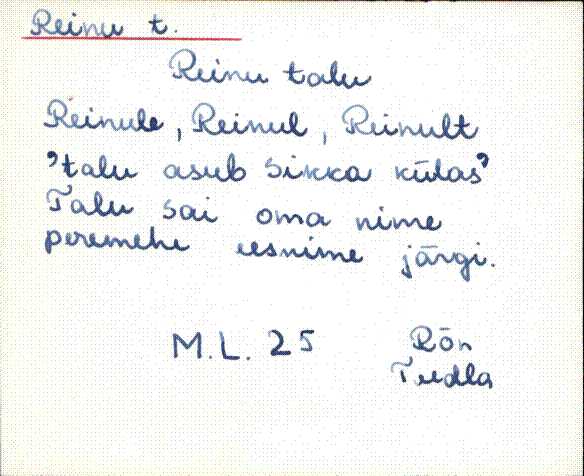 Reinu t.
Reinu talu
Reinule, Reinul, Reinult
"talu asub Sikka külas"
Talu sai oma nime
peremehe eesnime järgi.
M.L. 25 Rõn
Teedla